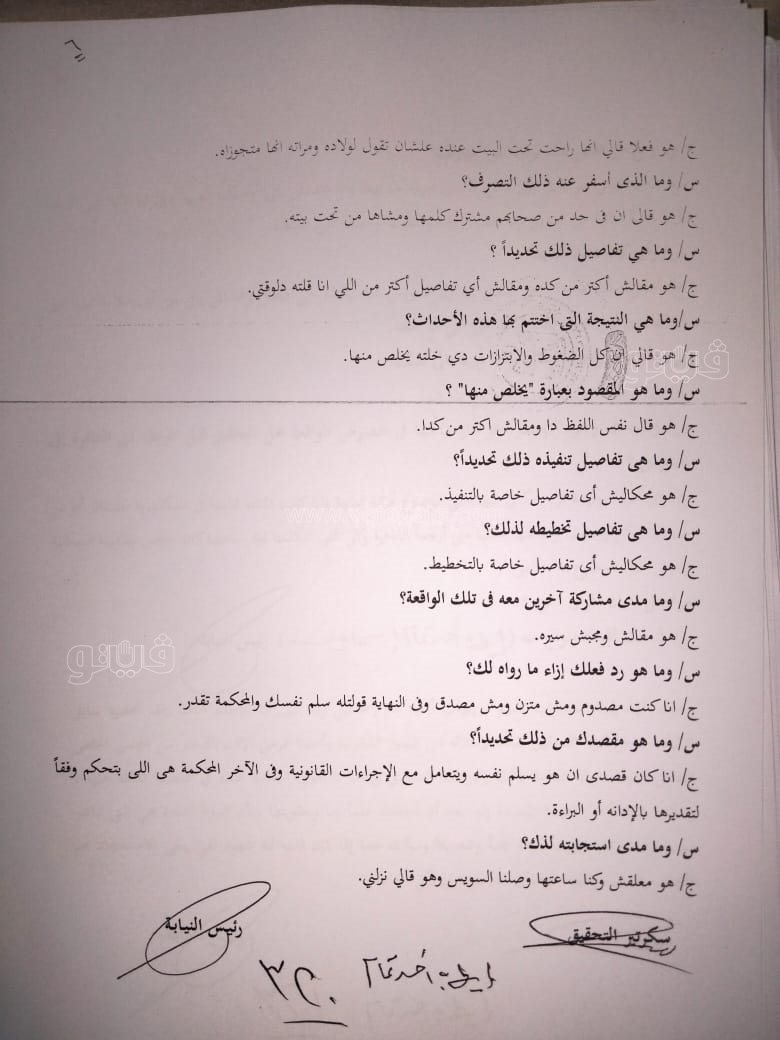 ٦
ج/ هو فعلا قالي انها راحت تحت البيت عنده علشان تقول لولاده ومراته انها متجوزاه.
س/ وما الذى أسفر عنه ذلك التصرف؟
ج/ هو قالى ان فى حد من صحابهم مشترك كلمها ومشاها من تحت بيته.
س/ وما هي تفاصيل ذلك تحديداً ؟
ج/ هو مقالش أكتر من كده ومقالش أي تفاصيل أكتر من اللي انا قلته دلوقتي.
س/وما هي النتيجة التى اختتم بها هذه الأحداث؟
ج/ هو قالي ان كل الضغوط والابتزازات دي خلته يخلص منها.
س/ وما هو المقصود بعبارة "يخلص منها" ؟
ج/ هو قال نفس اللفظ دا ومقالش اكتر من كدا.
س/ وما هى تفاصيل تنفيذه ذلك تحديداً؟
ج/ هو محكاليش أى تفاصيل خاصة بالتنفيذ.
س/ وما هى تفاصيل تخطيطه لذلك؟
ج/ هو محكاليش أى تفاصيل خاصة بالتخطيط.
س/ وما مدى مشاركة آخرين معه فى تلك الواقعة؟
ج/ هو مقالش ومجبش سيره.
ڤيتو
س/ وما هو رد فعلك إزاء ما رواه لك؟
ج/ انا كنت مصدوم ومش متزن ومش مصدق وفى النهاية قولتله سلم نفسك والمحكمة تقدر.
س/ وما هو مقصدك من ذلك تحديداً؟
ج/ انا كان قصدى ان هو يسلم نفسه ويتعامل مع الإجراءات القانونية وفى الآخر المحكمة هى اللى بتحكم وفقاً
لتقديرها بالإدانه أو البراءة.
س/ وما مدى استجابته لذك؟
ج/ هو معلقش وكنا ساعتها وصلنا السويس وهو قالي نزلني.
سكرتير التحقيق
رئيس النيابة